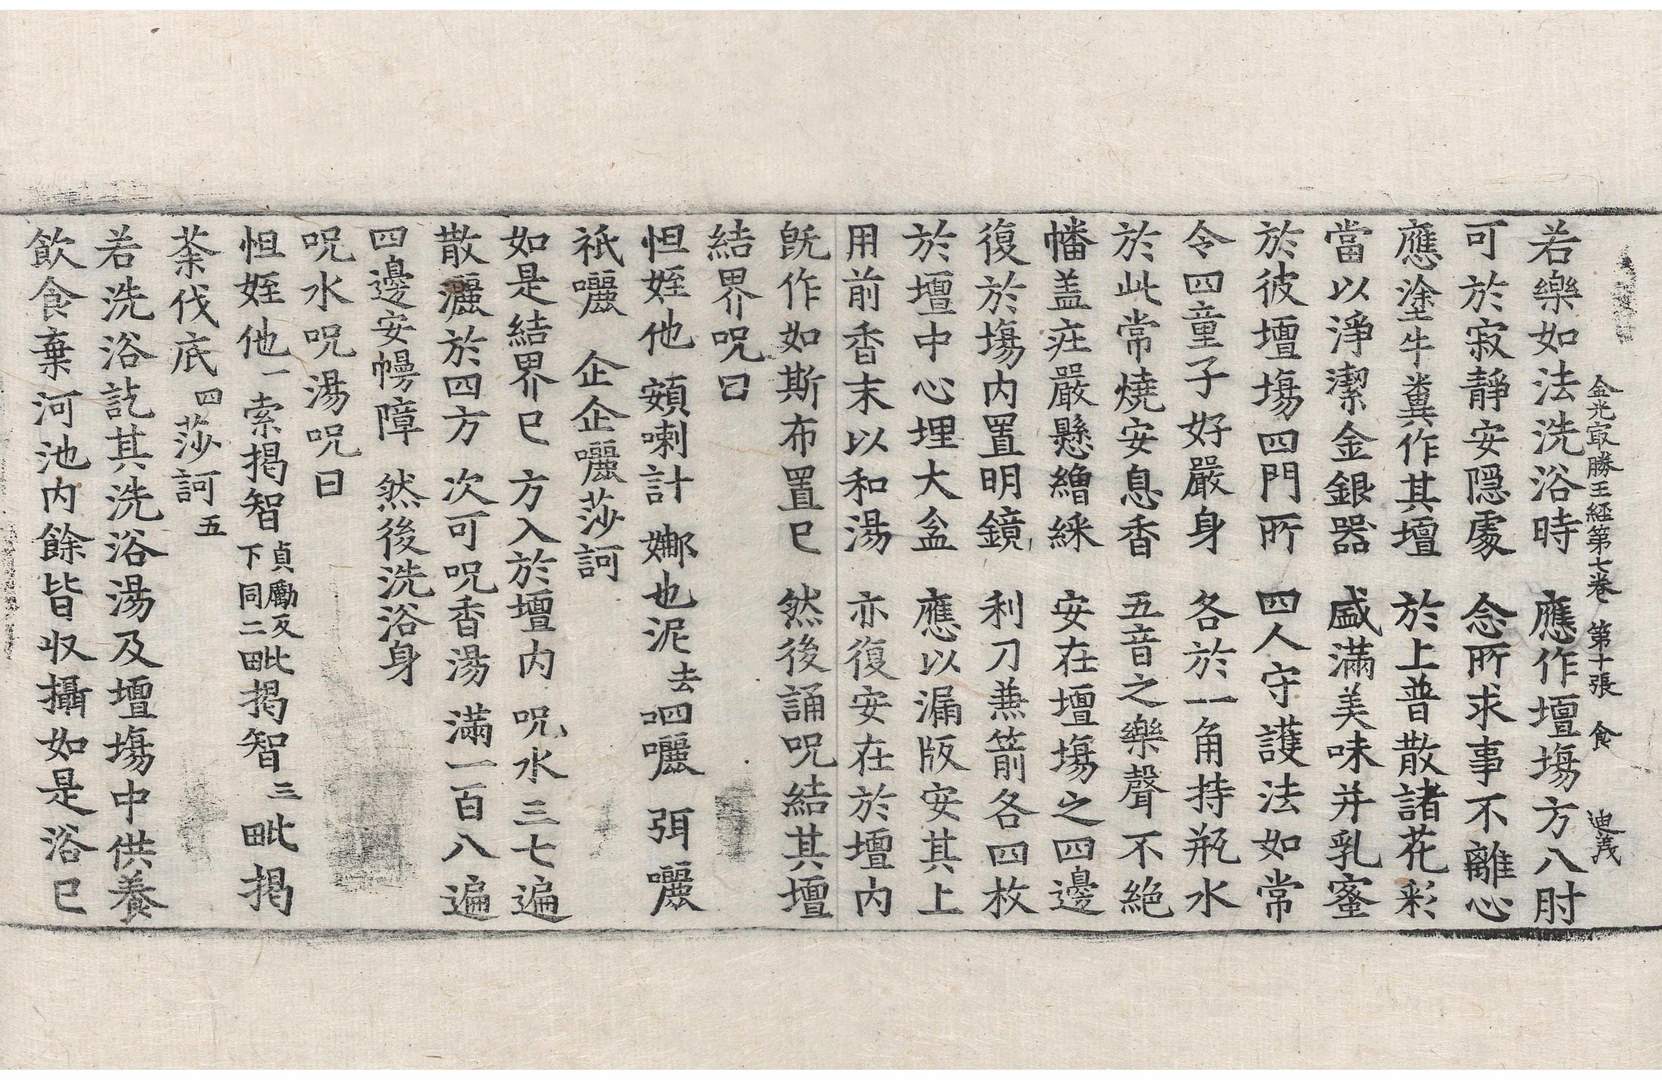 金光㝡勝王経第七卷 第十張 食 迪茂
若樂如法洗浴時 應作壇塲方八肘
可於寂靜安隠處 念所求事不離心
應塗牛糞作其壇 於上普散諸花彩
當以淨潔金銀器 盛滿美味并乳蜜
於彼壇塲四門所 四人守護法如常
令四童子好嚴身 各於一角持瓶水
於此常燒安息香 五音之樂聲不絶
幡盖荘嚴懸繒綵 安在壇塲之四邊
復於塲内置明鏡 利刀兼箭各四枚
於壇中心埋大盆 應以漏版安其上
用前香末以和湯 亦復安在於壇内
旣作如斯布置已 然後誦呪結其壇
結界呪曰
怛姪他 頞喇計 娜也泥去 呬囇 弭囇
祇囇 企企囇莎訶
如是結界已 方入於壇内 呪水三七遍
散灑於四方 次可呪香湯 滿一百八遍
四邊安幔障 然後洗浴身
呪水呪湯呪曰
怛姪他一 索揭智貞勵反下同二 毗揭智三 毗揭
荼伐底四 莎訶五
若洗浴訖其洗浴湯及壇塲中供養
飲食棄河池内餘皆收攝如是浴已